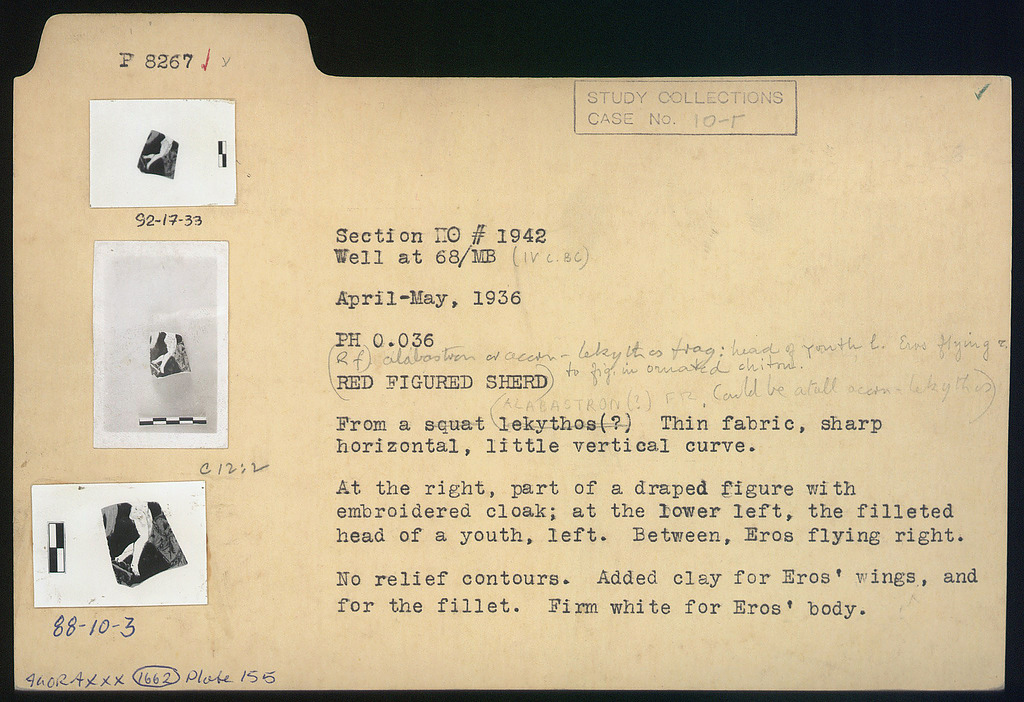 P 8267 ✓ x
STUDY COLLECTIONS
CASE No. 10-5
92-17-33
C 12:2
88-10-3
AGORA XXX 1662 Plate 155
Section ΠΘ # 1942
Well at 68/MB (IV c. BC)
April-May, 1936
PH 0.036
(Rf) alabastron or acorn-lekythos frag: head of youth l. Eros flying r.
to fig. in ornated chiton.
RED FIGURED SHERD
(ALABASTRON(?) FR. Could be a tall acorn-lekythos)
From a squat lekythos(?) Thin fabric, sharp
horizontal, little vertical curve.
At the right, part of a draped figure with
embroidered cloak; at the lower left, the filleted
head of a youth, left. Between, Eros flying right.
No relief contours. Added clay for Eros' wings, and
for the fillet. Firm white for Eros' body.